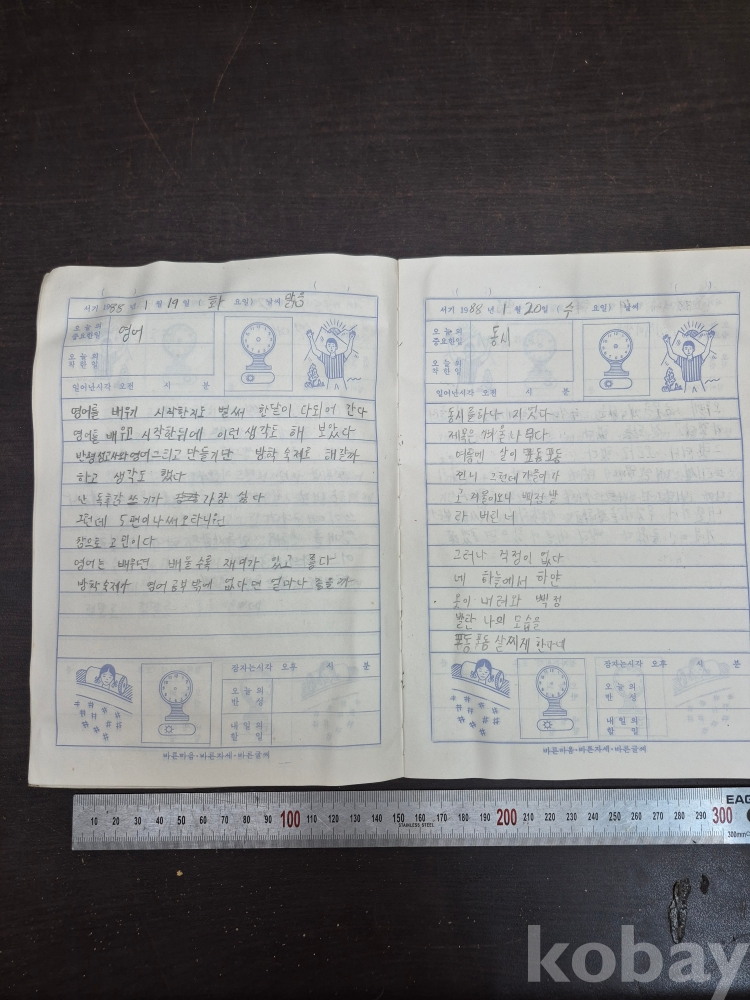 서기 1988년 1월 19일 (화요일) 날씨 맑음
오늘의 중요한일 영어
오늘의 착한일
일어난시각 오전 시 분
영어를 배우기 시작한지도 벌써 한달이 다되어 간다
영어를 배우고 시작한뒤에 이런 생각도 해 보았다
그리고 만들기만 방학 숙제로 해갈까
하고 생각도 했다
난 독후감 쓰기가 가장 싫다
그런데 5편이나 써오라니원
참으로 고민이다
영어는 배우면 배울수록 재미가 있고 좋다
방학숙제가 영어공부 밖에 없다면 얼마나 좋을까
잠자는시각 오후 시 분
오늘의 반성
내일의 할일
바른마음·바른자세·바른글씨
서기 1988년 1월 20일 (수요일) 날씨
오늘의 중요한일 동시
오늘의 착한일
일어난시각 오전 시 분
동시를하나 지었다
제목은 겨울나무다
여름에 살이 포동포동
찐니 그런데 가을이라
고 겨울이오니 빽정말
라 버린 너
그러나 걱정이 없다
네 하늘에서 하얀
옷이 내려와 빽정
말란 나의 모습을
포동포동 살찌게 한다네
잠자는시각 오후 시 분
오늘의 반성
내일의 할일
바른마음·바른자세·바른글씨
10 20 30 40 50 60 70 80 90 100 110 120 130 140 150 160 170 180 190 200 210 220 230 240 250 260 270 280 290 300
STAINLESS STEEL
EAG
300mm
kobay